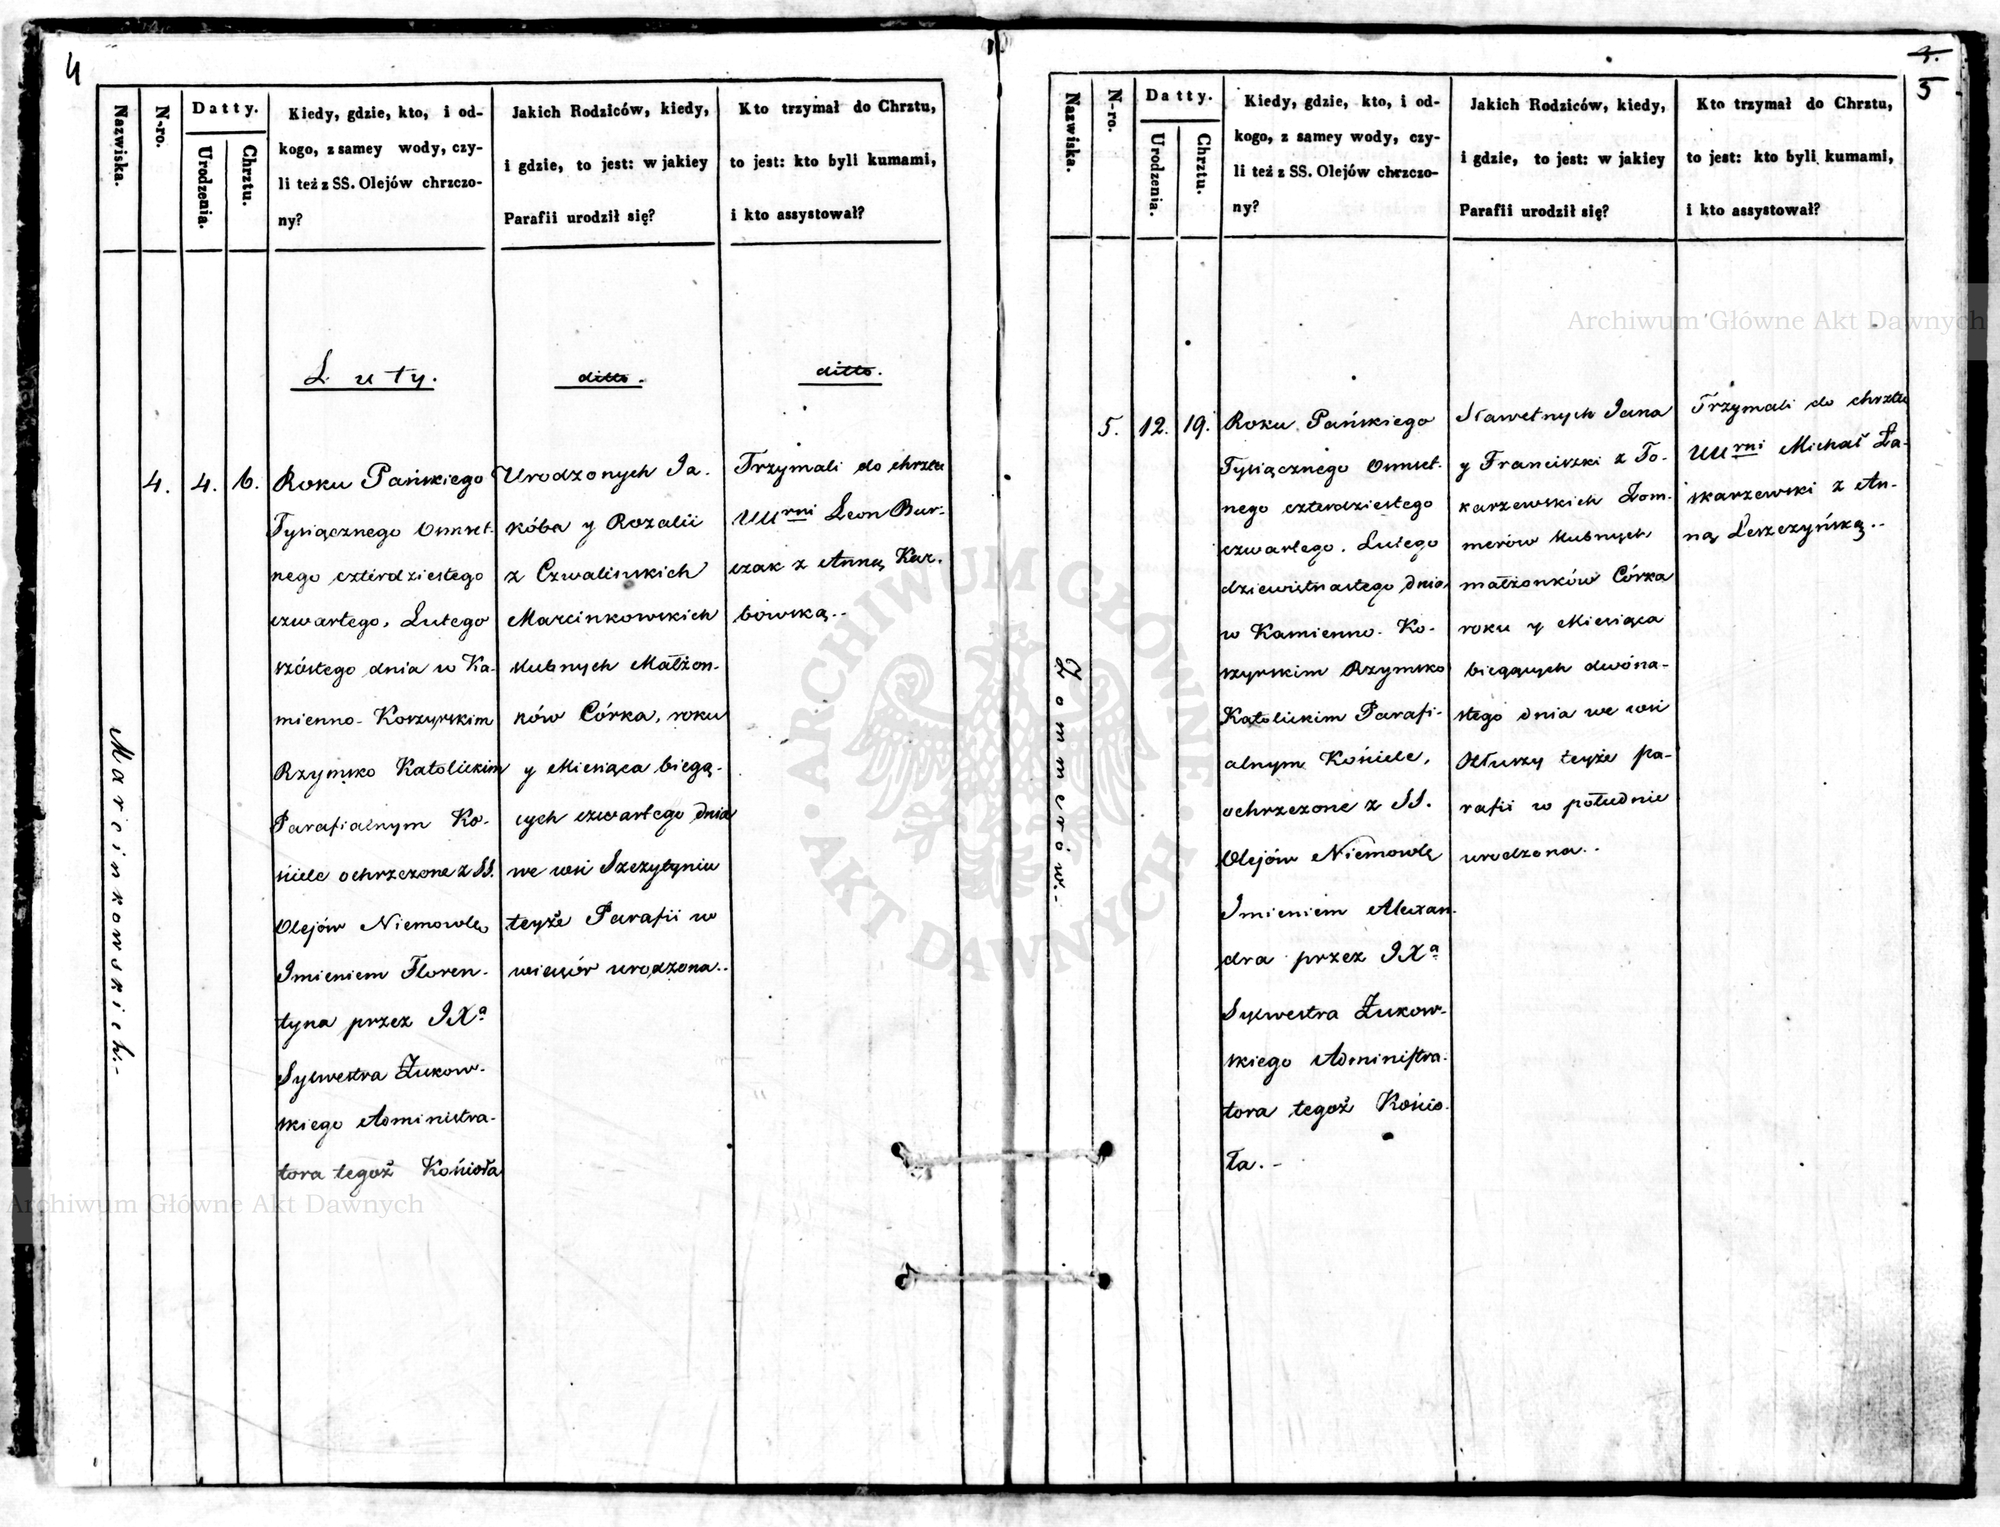 4
Nazwiska.
N-ro.
Datty.
Urodzenia.
Chrztu.
Kiedy, gdzie, kto, i od-
kogo, z samey wody, czy-
li też z SS. Olejów chrzczo-
ny?
Jakich Rodziców, kiedy,
i gdzie, to jest: w jakiey
Parafii urodził się?
Kto trzymał do Chrztu,
to jest: kto byli kumami,
i kto assystował?
Luty.
ditto.
ditto.
Marcinkowskich.-
4.
4.
6.
Roku Pańskiego
Tysiącznego Osmset-
nego czterdziestego
czwartego, Lutego
szóstego dnia w Ka-
mienno-Koszyrskim
Rzymsko Katolickim
Parafialnym Ko-
ściele ochrzczone z SS.
Olejów Niemowlę
Imieniem Floren-
tyna przez JXa
Sylwestra Żukow-
skiego Administra-
tora tegoż Kościoła
Urodzonych Ja-
kóba y Rozalii
z Czwalinskich
Marcinkowskich
slubnych Małżon-
ków Córka, roku
y Miesiąca biegą-
cych czwartego dnia
we wsi Szczytyniu
teyże Parafii w
wieczór urodzona..
Trzymali do chrztu
UUrni Leon Bur-
czak z Anną Kar-
bowską..
4.
5
Nazwiska.
N-ro.
Datty.
Urodzenia.
Chrztu.
Kiedy, gdzie, kto, i od-
kogo, z samey wody, czy-
li też z SS. Olejów chrzczo-
ny?
Jakich Rodziców, kiedy,
i gdzie, to jest: w jakiey
Parafii urodził się?
Kto trzymał do Chrztu,
to jest: kto byli kumami,
i kto assystował?
Zommerów.-
5.
12.
19.
Roku Pańskiego
Tysiącznego Osmset-
nego czterdziestego
czwartego. Lutego
dziewiętnastego dnia
w Kamienno-Ko-
szyrskim Rzymsko
Katolickim Parafi-
alnym Kościele,
ochrzczone z SS.
Olejów Niemowlę
Imieniem Alexan-
dra przez JXa
Sylwestra Żukow-
skiego Administra-
tora tegoż Kościo-
ła.-
Sławetnych Jana
y Franciszki z To-
karzewskich Zom-
merów slubnych
małżonków Córka
roku y Miesiąca
biegących dwóna-
stego dnia we wsi
Olłuszy teyże pa-
rafii w południe
urodzona..
Trzymali do chrztu
UUrni Michał Ła-
skarzewski z An-
ną Leszczyńską..
Archiwum Główne Akt Dawnych
Archiwum Główne Akt Dawnych
ARCHIWUM GŁÓWNE · AKT DAWNYCH ·